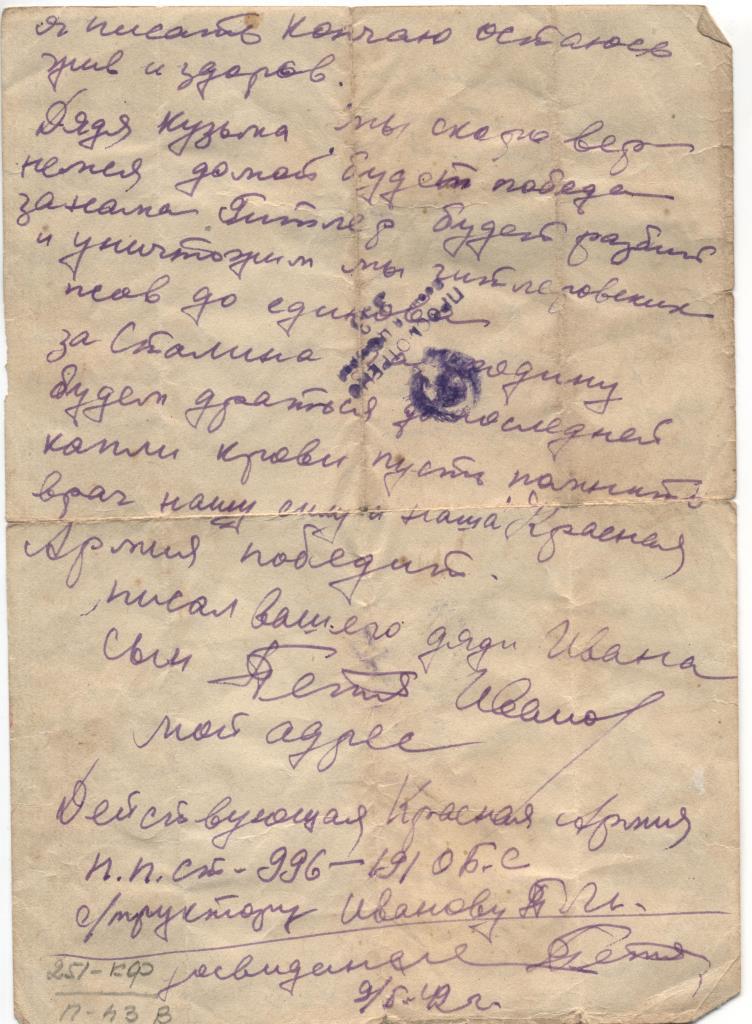 я писать кончаю остаюсь
жив и здоров.
Дядя кузьма мы скоро вер
немся домой будет победа
занама Гитлер будет разбит
и уничтожим мы гитлеровских
псов до единова
за Сталина за родину
будем драться до последней
капли крови пусть помнить
врач нашу силу и наша Красная
Армия победит.
писал вашего дяди Ивана
сын Петя Иванов
мой адрес
Действующая Красная Армия
п.п.ст-996-191 О.Б.С
с/труктору Иванову П.И.
досвидание Петя
9/5-42 г.
ПРОСМОТРЕНО
251-КФ
П-43 В